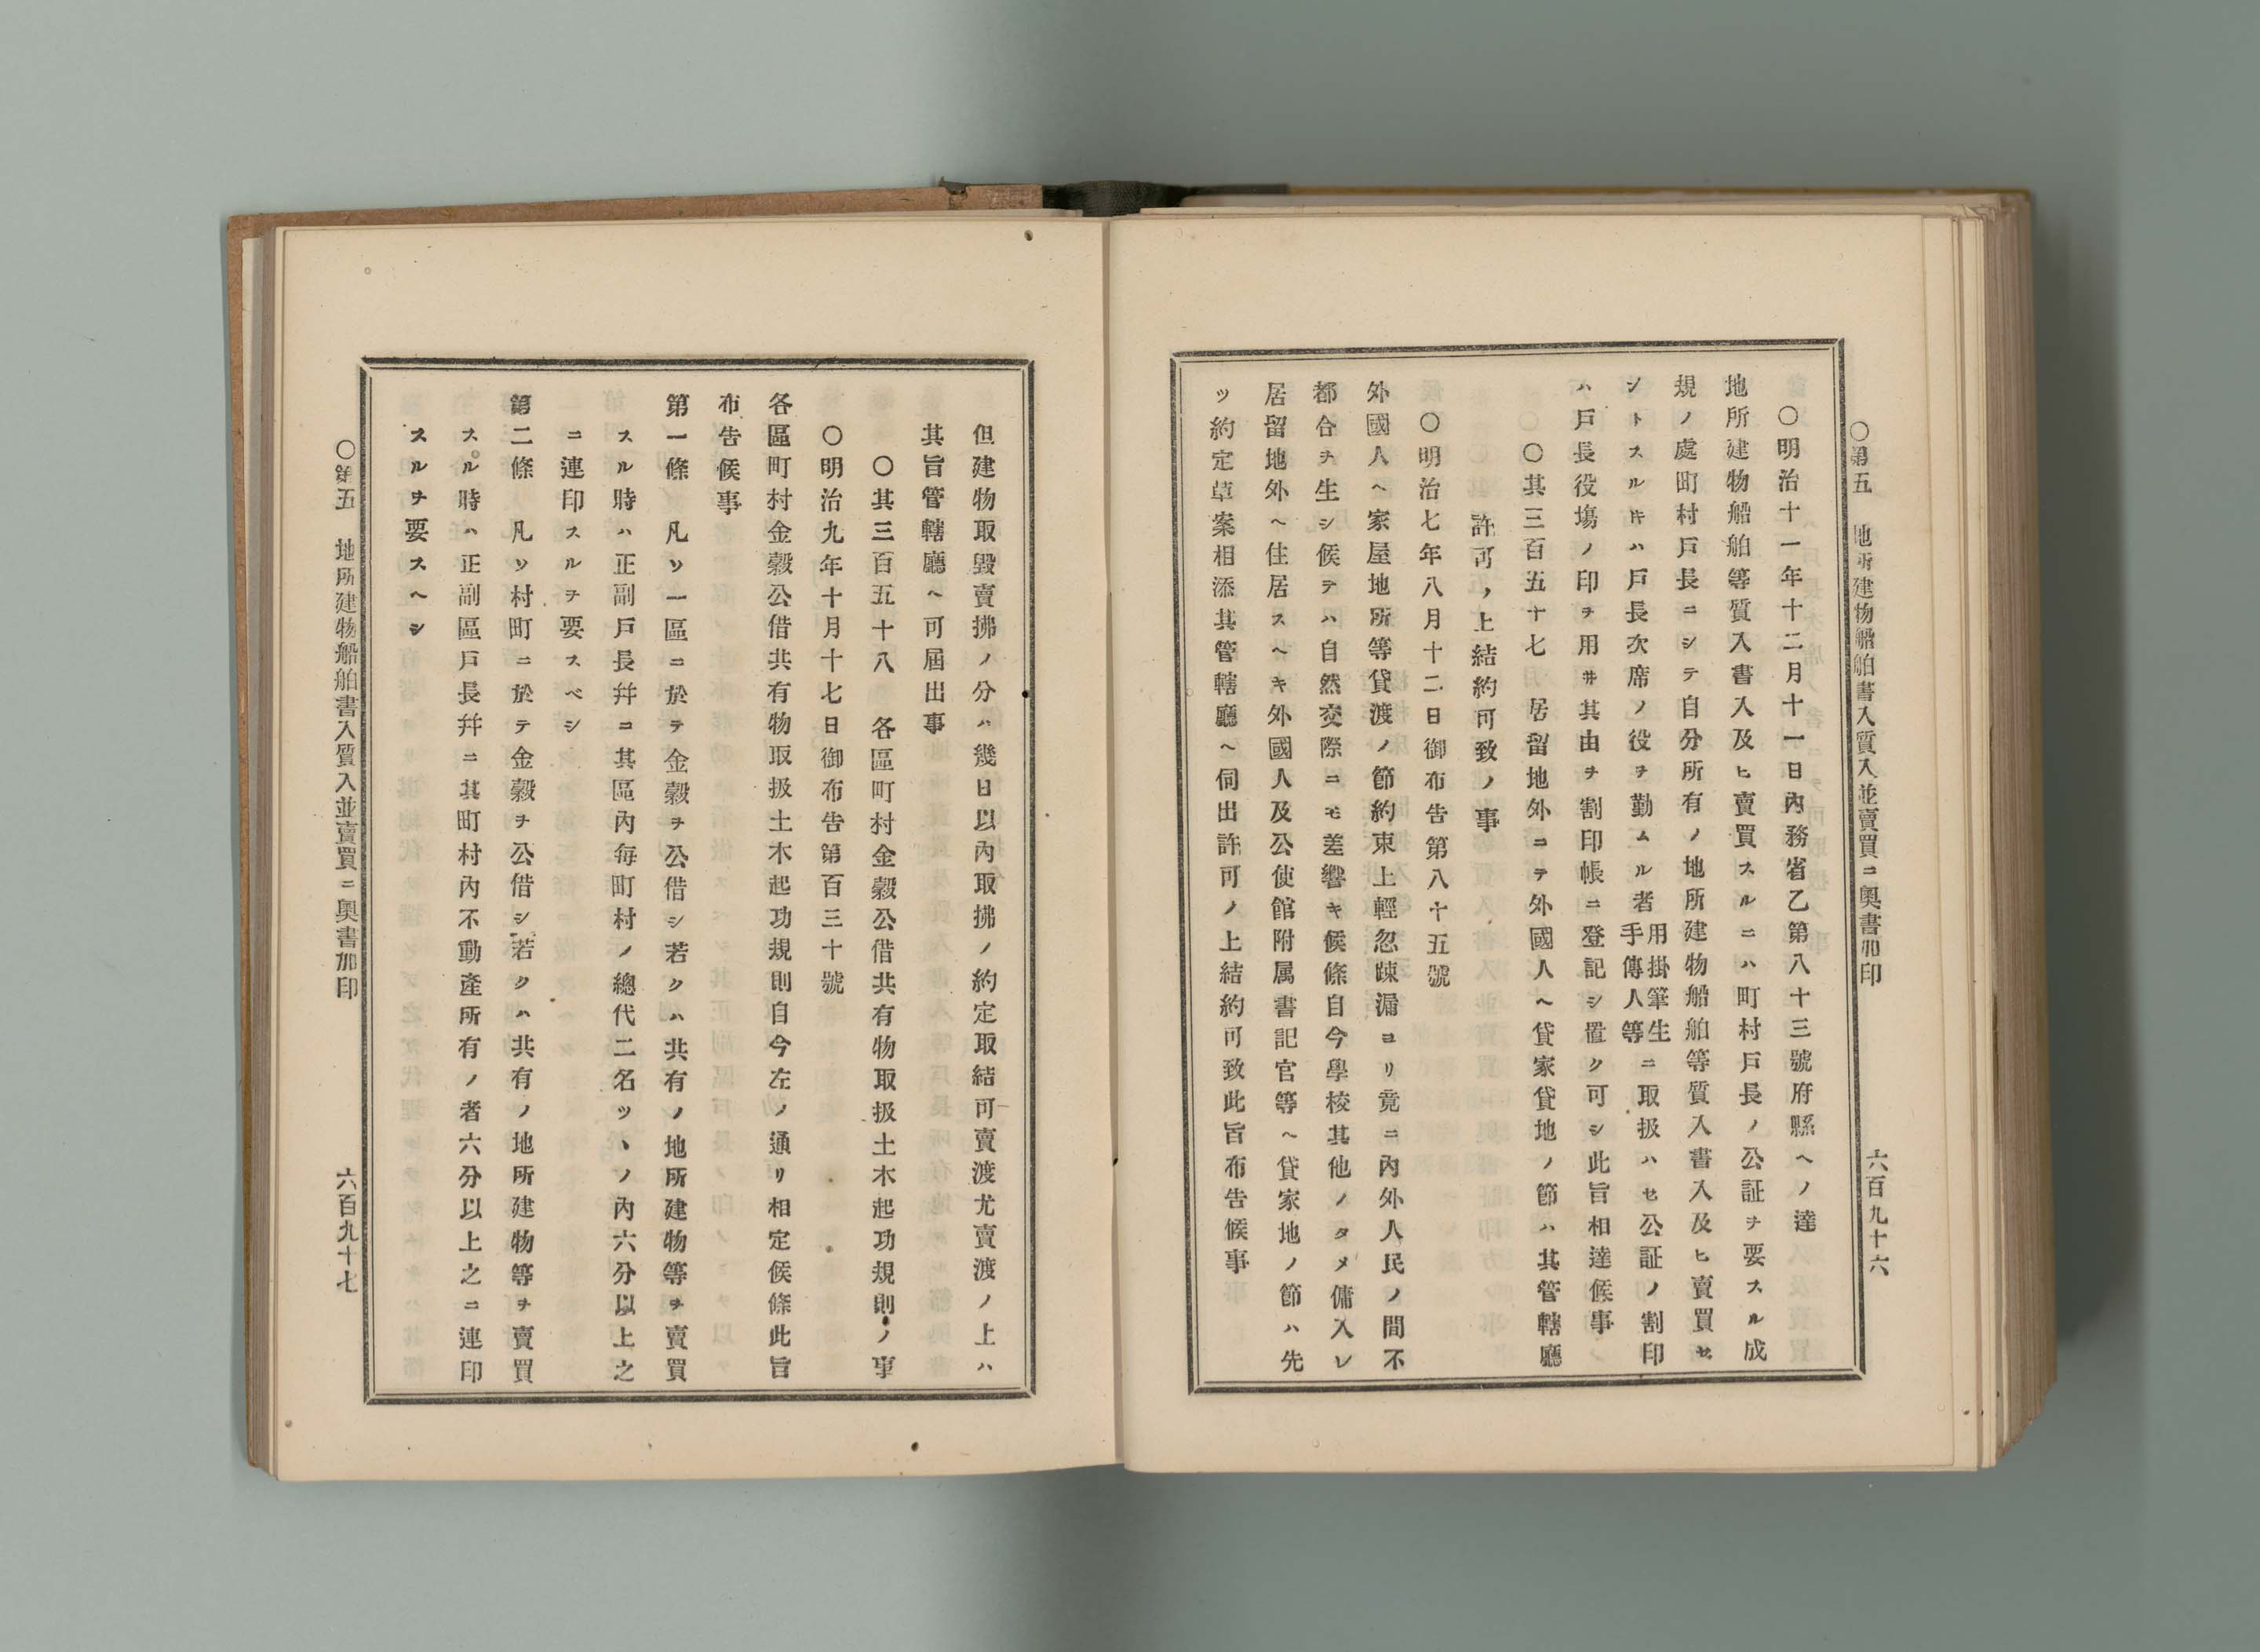 〇第五　地所建物船舶書入質入並賣買ニ奥書加印　六百九十六
〇明治十一年十二月十一日內務省乙第八十三號府縣ヘノ達
地所建物船舶等質入書入及ヒ賣買スルニハ町村戸長ノ公証ヲ要スル成
規ノ處町村戸長ニシテ自分所有ノ地所建物船舶等質入書入及ヒ賣買セ
ントスルキハ戸長次席ノ役ヲ勤ムル者用掛筆生手傳人等ニ取扱ハセ公証ノ割印
ハ戸長役塲ノ印ヲ用井其由ヲ割印帳ニ登記シ置ク可シ此旨相達候事
〇其三百五十七　居留地外ニテ外國人ヘ貸家貸地ノ節ハ其管轄廳
許可ノ上結約可致ノ事
〇明治七年八月十二日御布告第八十五號
外國人ヘ家屋地所等貸渡ノ節約束上輕忽踈漏ヨリ竟ニ內外人民ノ間不
都合ヲ生シ候テハ自然交際ニモ差響キ候條自今學校其他ノタメ傭入レ
居留地外ヘ住居スヘキ外國人及公使館附属書記官等ヘ貸家地ノ節ハ先
ツ約定草案相添其管轄廳ヘ伺出許可ノ上結約可致此旨布告候事
但建物取毀賣拂ノ分ハ幾日以內取拂ノ約定取結可賣渡尤賣渡ノ上ハ
其旨管轄廳ヘ可屆出事
〇其三百五十八　各區町村金穀公借共有物取扱土木起功規則ノ事
〇明治九年十月十七日御布告第百三十號
各區町村金穀公借共有物取扱土木起功規則自今左ノ通リ相定候條此旨
布告候事
第一條　凡ソ一區ニ於テ金穀ヲ公借シ若クハ共有ノ地所建物等ヲ賣買
スル時ハ正副戸長幷ニ其區內每町村ノ總代二名ツヽノ內六分以上之
ニ連印スルヲ要スベシ
第二條　凡ソ村町ニ於テ金穀ヲ公借シ若クハ共有ノ地所建物等ヲ賣買
スル時ハ正副區戸長幷ニ其町村內不動產所有ノ者六分以上之ニ連印
スルヲ要スヘシ
〇第五　地所建物船舶書入質入並賣買ニ奥書加印　六百九十七